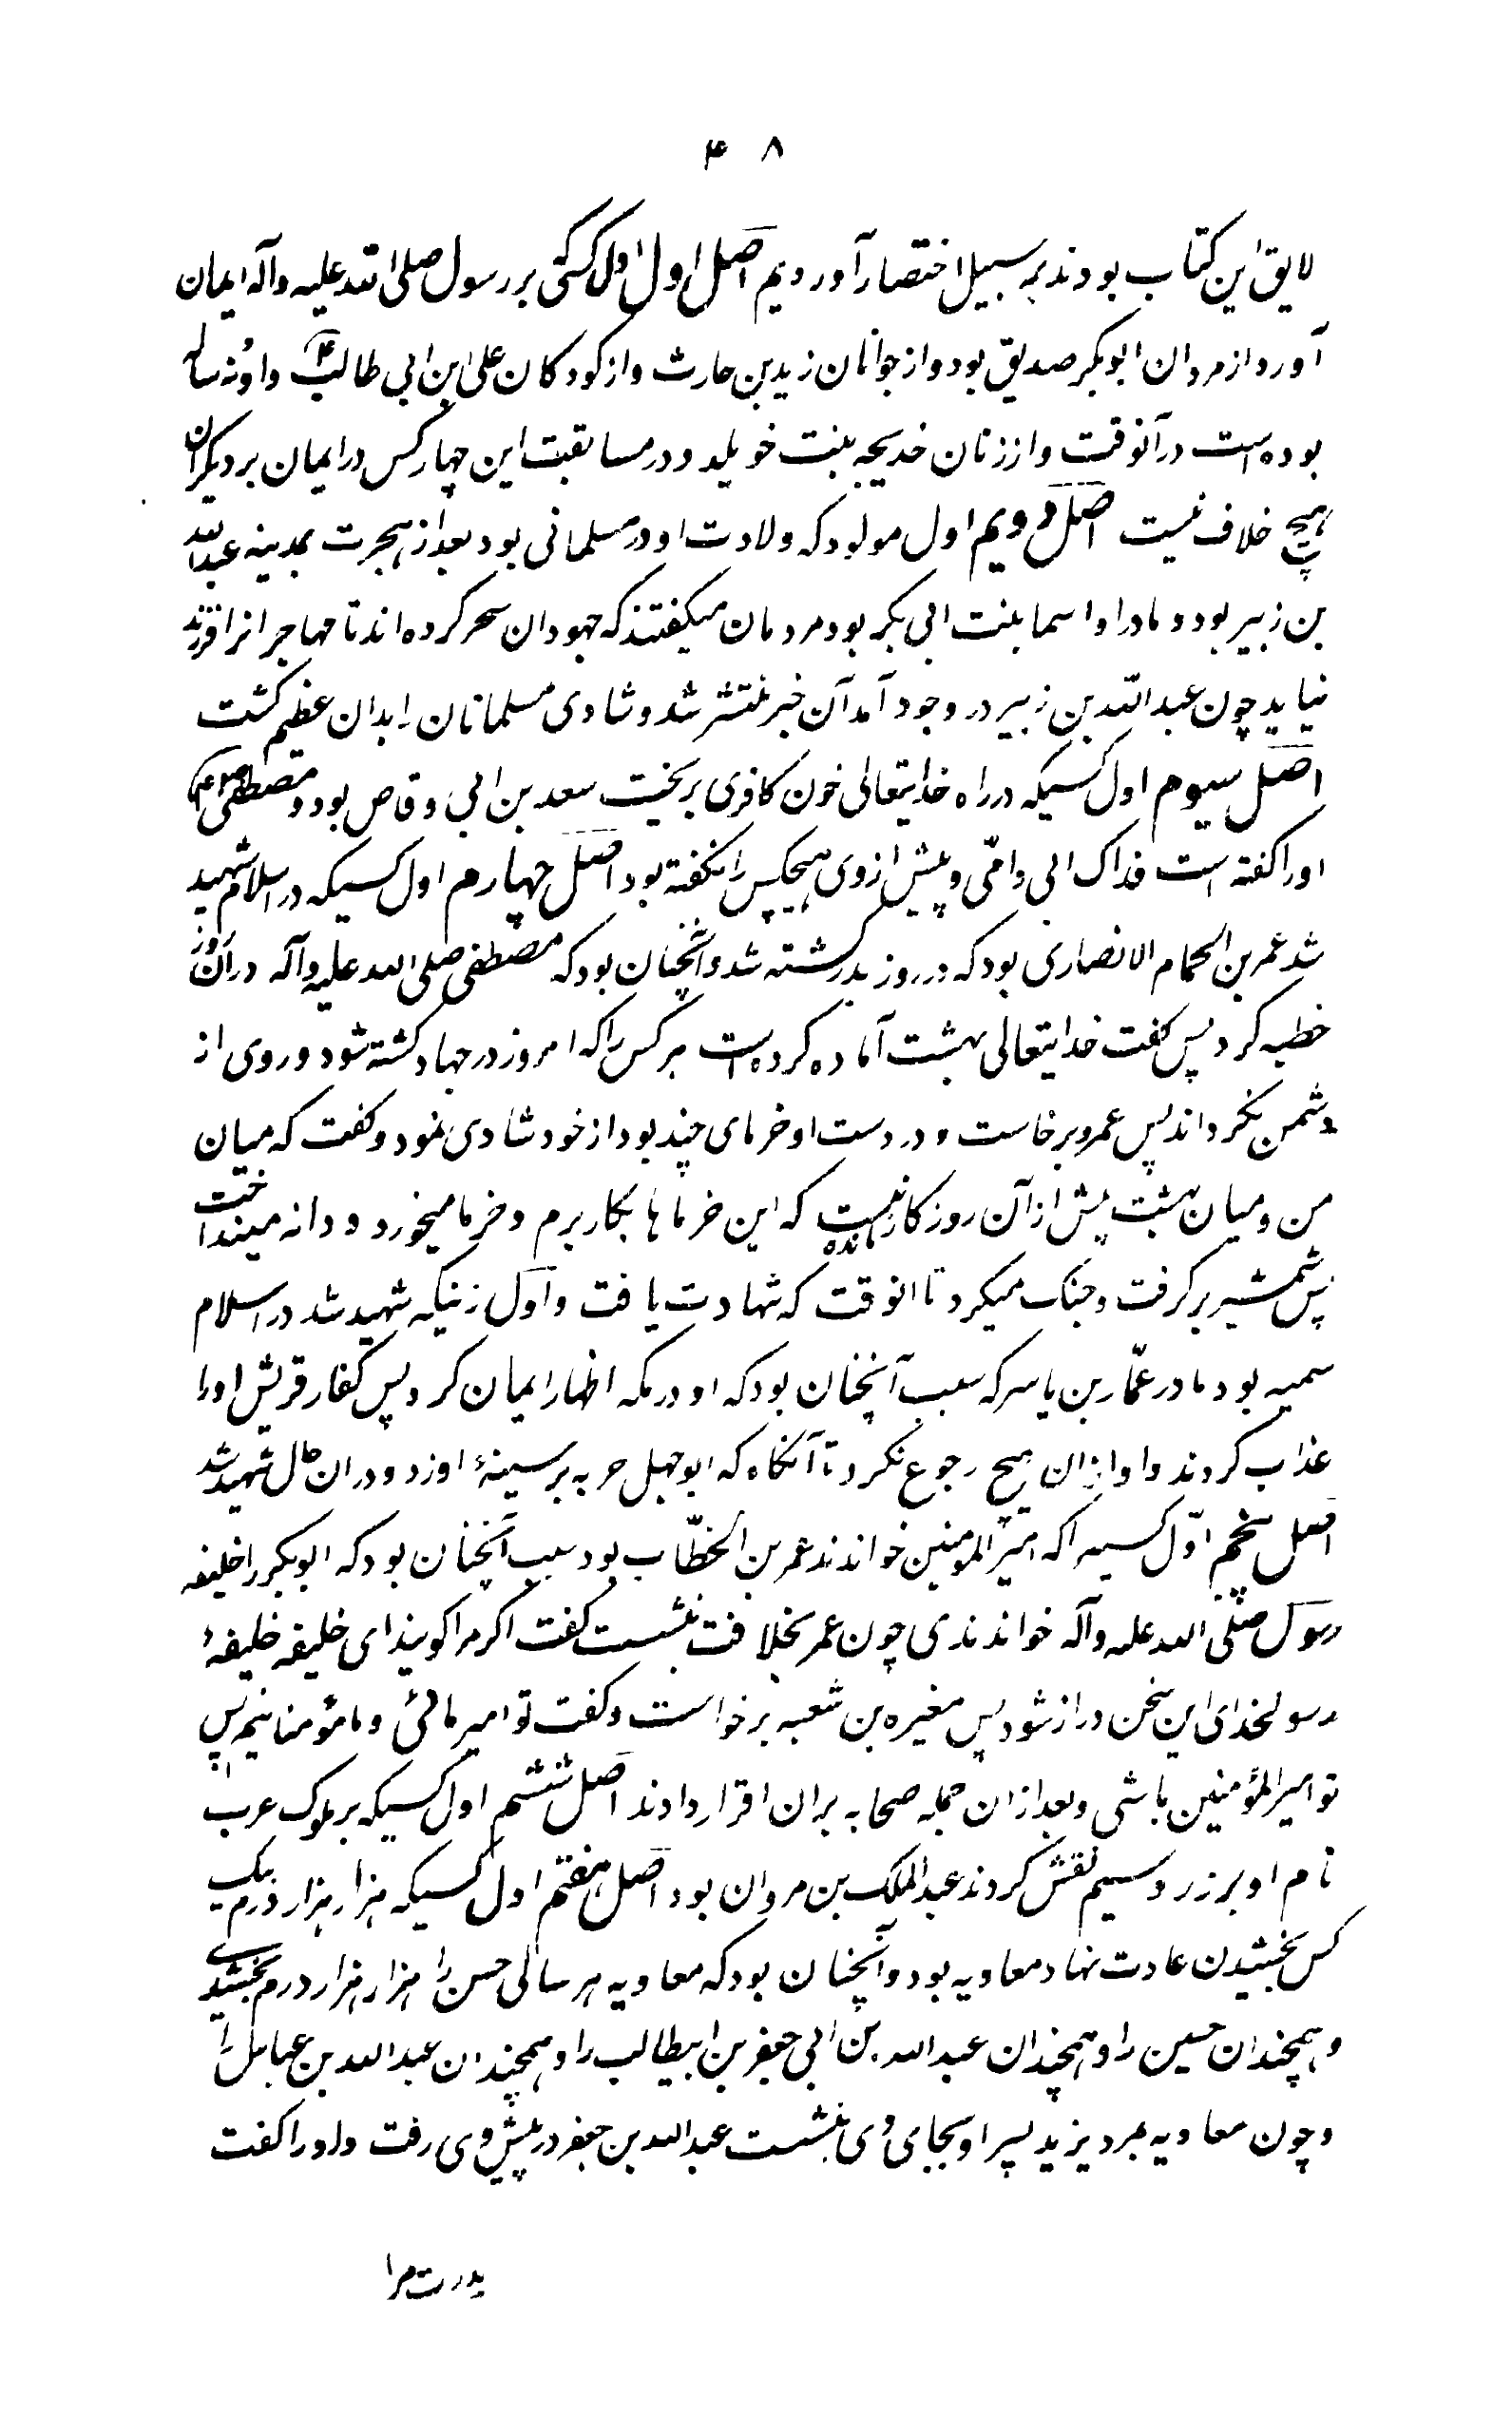 ۴۸
لایق این کتاب بودند بر سبیل اختصار آوردیم اصل اول اول کسی که بر رسول صلی الله علیه وآله ایمان
آورد از مردان ابوبکر صدیق بود و از جوانان زید بن حارث و از کودکان علی ابن ابی طالب ع و او نه ساله
بوده است در آنوقت و از زنان خدیجه بنت خویلد و در مسابقت این چهار کس در ایمان بر دیکران
هیچ خلاف نیست اصل دویم اول مولود که ولادت او در مسلمانی بود بعد از هجرت بمدینه عبدالله
بن زبیر بود و مادر او اسما بنت ابی بکر بود مردمان میکفتند که جهودان سحر کرده اند تا مهاجرانرا فرزند
نیاید چون عبدالله بن زبیر در وجود آمد آن خبر منتشر شد و شادی مسلمانان بدان عظیم کشت
اصل سیوم اول کسیکه در راه خدایتعالی خون کافری بریخت سعد بن ابی وقاص بود و مصطفی
اورا کفته است فداک ابی وامّی و پیش از وی هیچکس را نکفته بود اصل چهارم اول کسیکه در اسلام شهید
شد عمر بن الحمام الانصاری بود که در روز بدر کشته شد و آنچنان بود که مصطفی صلی الله علیه وآله در آن روز
خطبه کرد پس کفت خدایتعالی بهشت آماده کرده است هر کس را که امروز در جهاد کشته شود و روی از
دشمن نکرداند پس عمرو برخاست و در دست او خرمای چند بود از خود شادی نمود و کفت که میان
من و میان بهشت بیش از آن روزکار نمانده است که این خرماها بکار برم و خرما میخورد و دانه میانداخت
پس شمشیر برکرفت و جنک میکرد تا انوقت که شهادت یافت و اول زنیکه شهید شد در اسلام
سمیه بود مادر عمّار بن یاسر که سبب آنچنان بود که او در مکه اظهار ایمان کرد پس کفار قریش اورا
عذاب کردند و او از ان هیچ رجوع نکرد تا آنکاه که ابوجهل حربه بر سینهٔ او زد و در ان حال شهید شد
اصل پنجم اوّل کسیرا که امیرالمومنین خواندند عمر بن الخطّاب بود سبب آنچنان بود که ابوبکر را خلیفه
رسول صلی الله علیه وآله خواندندی چون عمر بخلافت بنشست کفت اکر مرا کویند ای خلیفه خلیفهٔ
رسولخدای این سخن دراز شود پس مغیره بن شعبه برخواست و کفت تو امیر مائی و ما مؤمنانیم پس
تو امیرالمؤمنین باشی و بعد از ان جمله صحابه بران اقرار دادند اصل ششم اول کسیکه بر ملوک عرب
نام او بر زر و سیم نقش کردند عبدالملک بن مروان بود اصل هفتم اول کسیکه هزار هزار درم بیک
کس بخشیدن عادت نهاد معاویه بود و آنچنان بود که معاویه هر سالی حسن را هزار هزار درم بخشیدی
و همچندان حسین را و همچندان عبدالله بن ابی جعفر بن ابیطالب را و همچندان عبدالله بن عباس را
و چون معاویه بمرد یزید پسر او بجای وی بنشست عبدالله بن جعفر در پیش وی رفت و اورا کفت
پدرت مرا